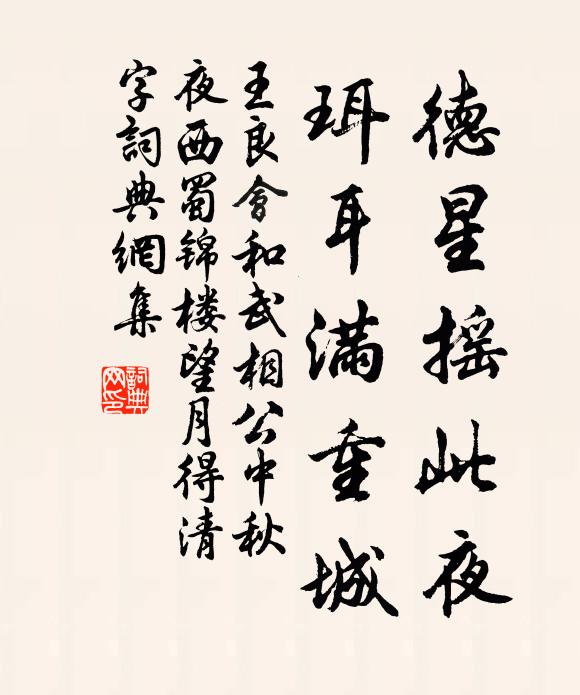 德星摇此夜
珥耳满重城
王良會和武相公中秋
夜西蜀锦楼望月得清
字詞典網集
詞典
网印